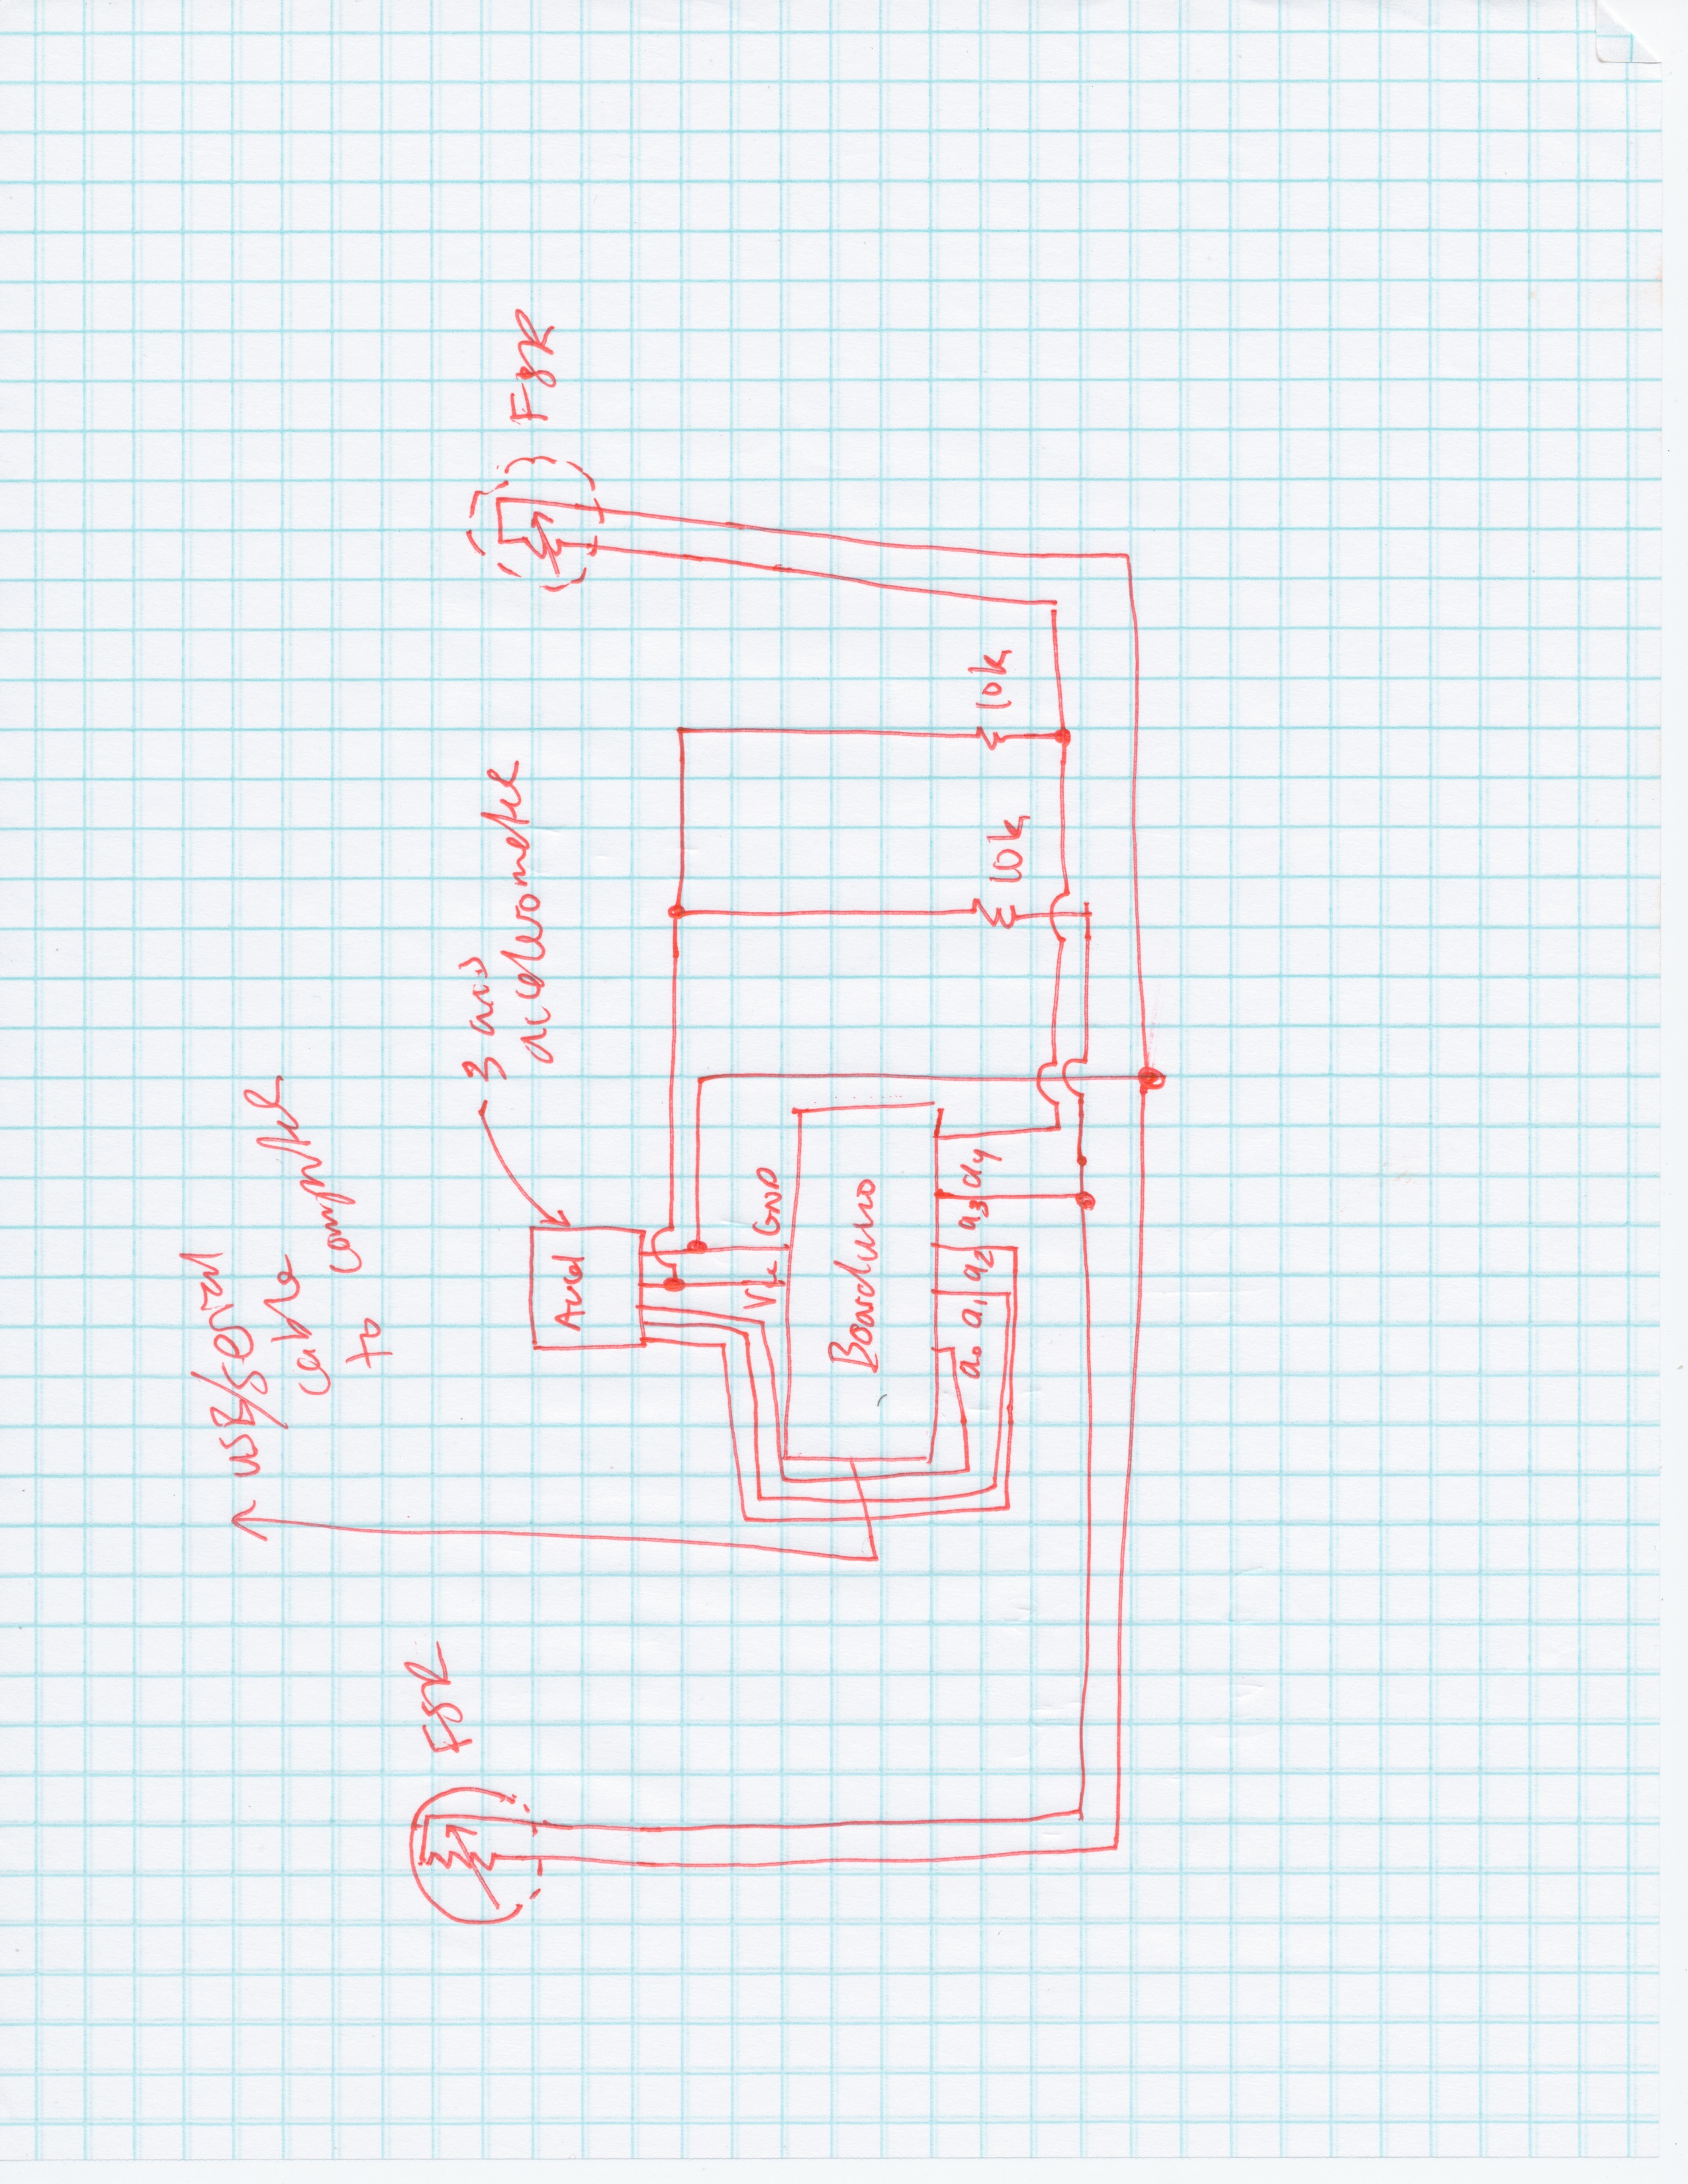 usb/serial
cable
to computer
3 axis
accelerometer
FSR
FSR
Accel
Vcc GND
Boarduino
a0 a1 a2 a3 a4
10k
10k